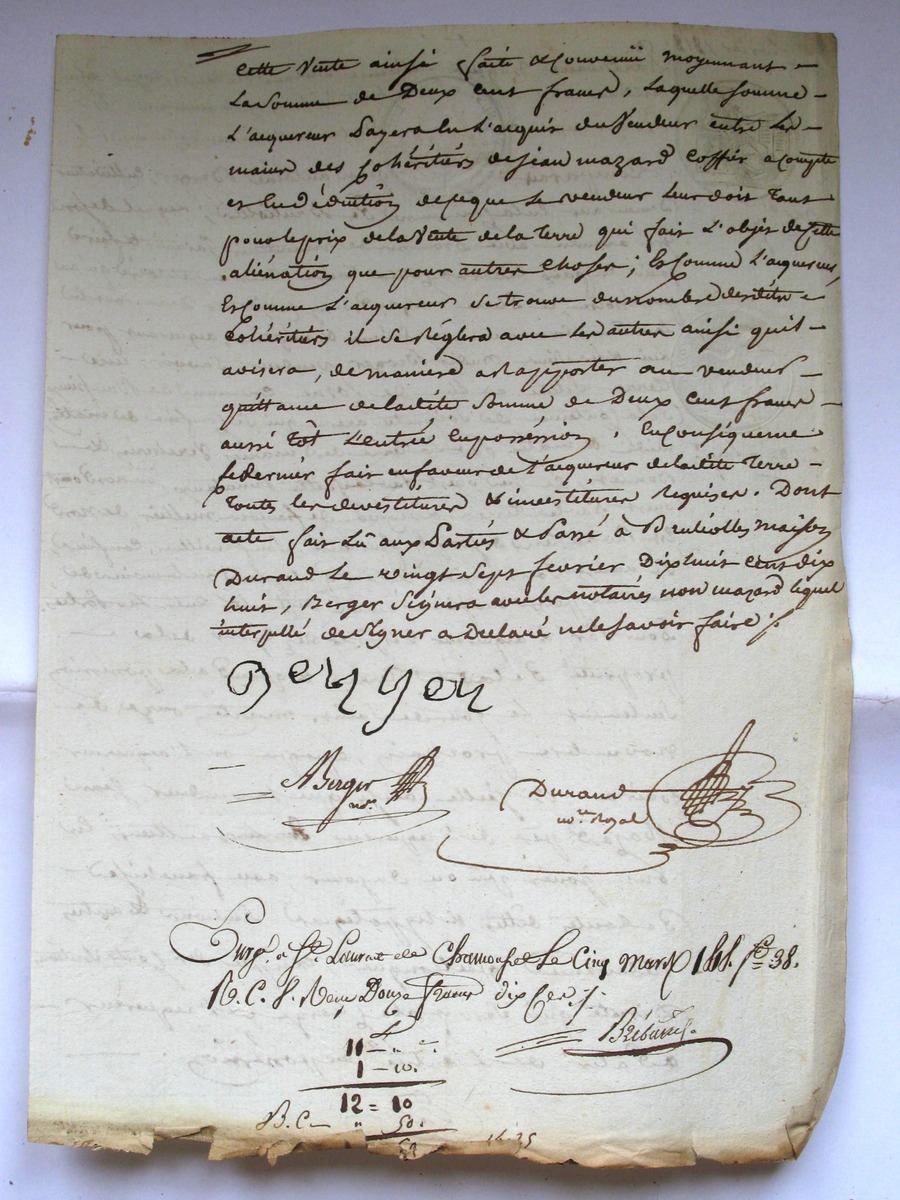 Cette Vente ainsi faite & Convenüe moyennant =
La Somme de Deux cent francs, laquelle Somme =
L'acquereur Payera En L'acquit du Vendeur entre Les =
mains des Cohéritiers de Jean mazard Coffier a Compte
et En Déduction de ce que Le vendeur Leur doit Tant
pour le prix de la Vente de la Terre qui fait L'objet de Cette
aliénation que pour autres Choses; Et Comme L'acquereur,
Et Comme L'acquereur Se trouve du nombre desdits =
Cohéritiers il Se Réglera avec Les autres ainsi qu'il =
avisera, de maniere a Rapporter au vendeur =
quittance de ladite Somme de Deux Cent francs =
aussi Tôt L'entrée En possession. En Conséquence
Ce dernier fait en faveur de L'acquereur de ladite Terre =
Toutes Les devestitures & investitures Requises. Dont
acte fait Lû aux Parties & Passé à Brulioles maison
Durand Le vingt Sept fevrier Dix huit Cent dix
huit, Berger Signera avec les notaires non mazard lequel
interpellé de Signer a Déclaré ne le Savoir faire ./.
Berger
Berger
nre.
Durand
nore Royal
Enrg. a St. Laurent de Chamousset Le Cinq Mars 1818. fo 38.
R. C. Reçu Douze francs dix Ces ./.
11 - "
1 - 10.
12 = 10
B. C - " 50.